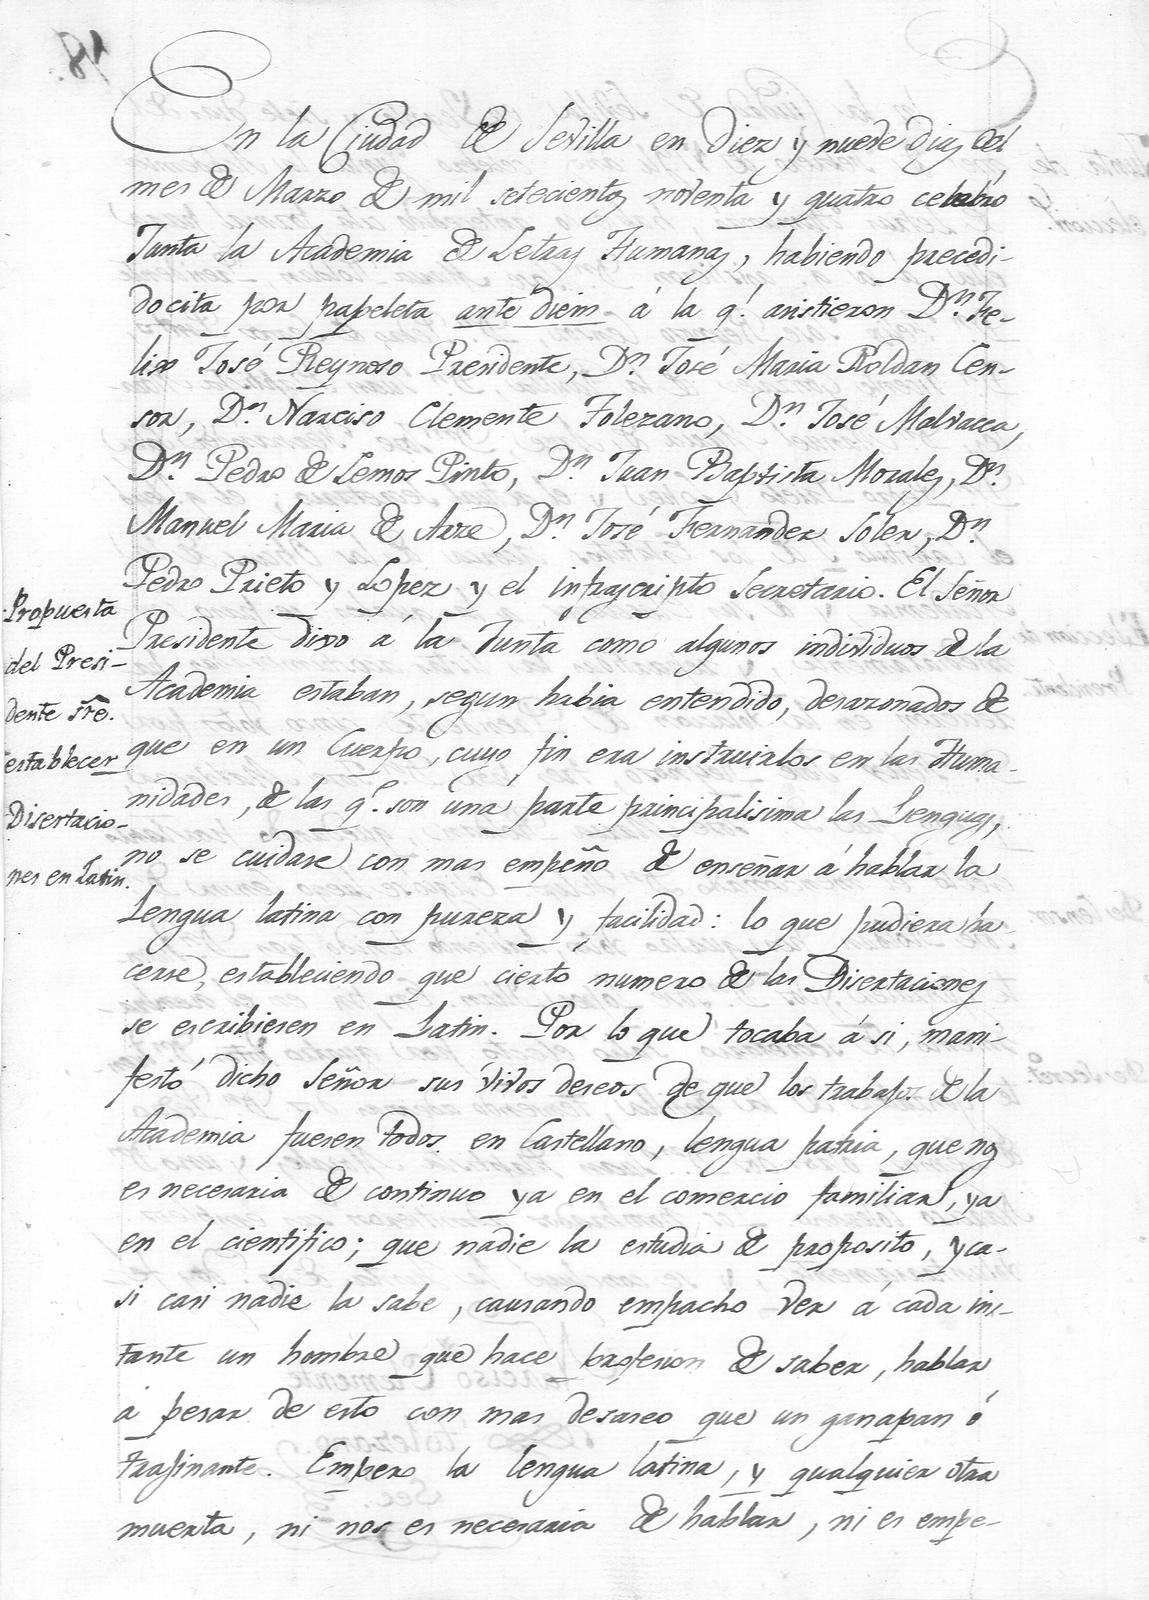 En la Ciudad de Sevilla en Diez y nueve dias del
mes de Marzo de mil setecientos noventa y quatro celebró
Junta la Academia de Letras Humanas, habiendo precedi-
do cita por papeleta ante diem á la q.e asistieron D.n Fe-
lix José Reynoso Presidente, D.n José Maria Roldan Cen-
sor, D.n Narciso Clemente Tolezano, D.n José Malvacea,
D.n Pedro de Lemos Pinto, D.n Juan Baptista Morales, D.n
Manuel Maria de Arze, D.n José Fernandez Soler, D.n
Pedro Prieto y Lopez y el infrascripto Secretario. El Señor
Presidente dixo á la Junta como algunos individuos de la
Academia estaban, segun habia entendido, desazonados de
que en un Cuerpo, cuyo fin era instruirlos en las Huma-
nidades, de las q.e son una parte principalisima las Lenguas,
no se cuidase con mas empeño de enseñar á hablar la
Lengua latina con pureza y facilidad: lo que pudiera ha-
cerse, estableciendo que cierto numero de las Disertaciones
se escribiesen en Latin. Por lo que tocaba á si, mani-
festó dicho Señor sus vivos deseos de que los trabajos de la
Academia fuesen todos en Castellano, lengua patria, que nos
es necesaria de continuo ya en el comercio familiar, ya
en el cientifico; que nadie la estudia de proposito, y ca-
si casi nadie la sabe, causando empacho ver á cada ins-
tante un hombre que hace profesion de saber, hablar
á pesar de esto con mas desaseo que un ganapan ó
trajinante. Empero la lengua latina, y qualquier otra
muerta, ni nos es necesaria de hablar, ni es empe-
Propuesta
del Presi-
dente sre.
establecer
Disertacio-
nes en Latin.